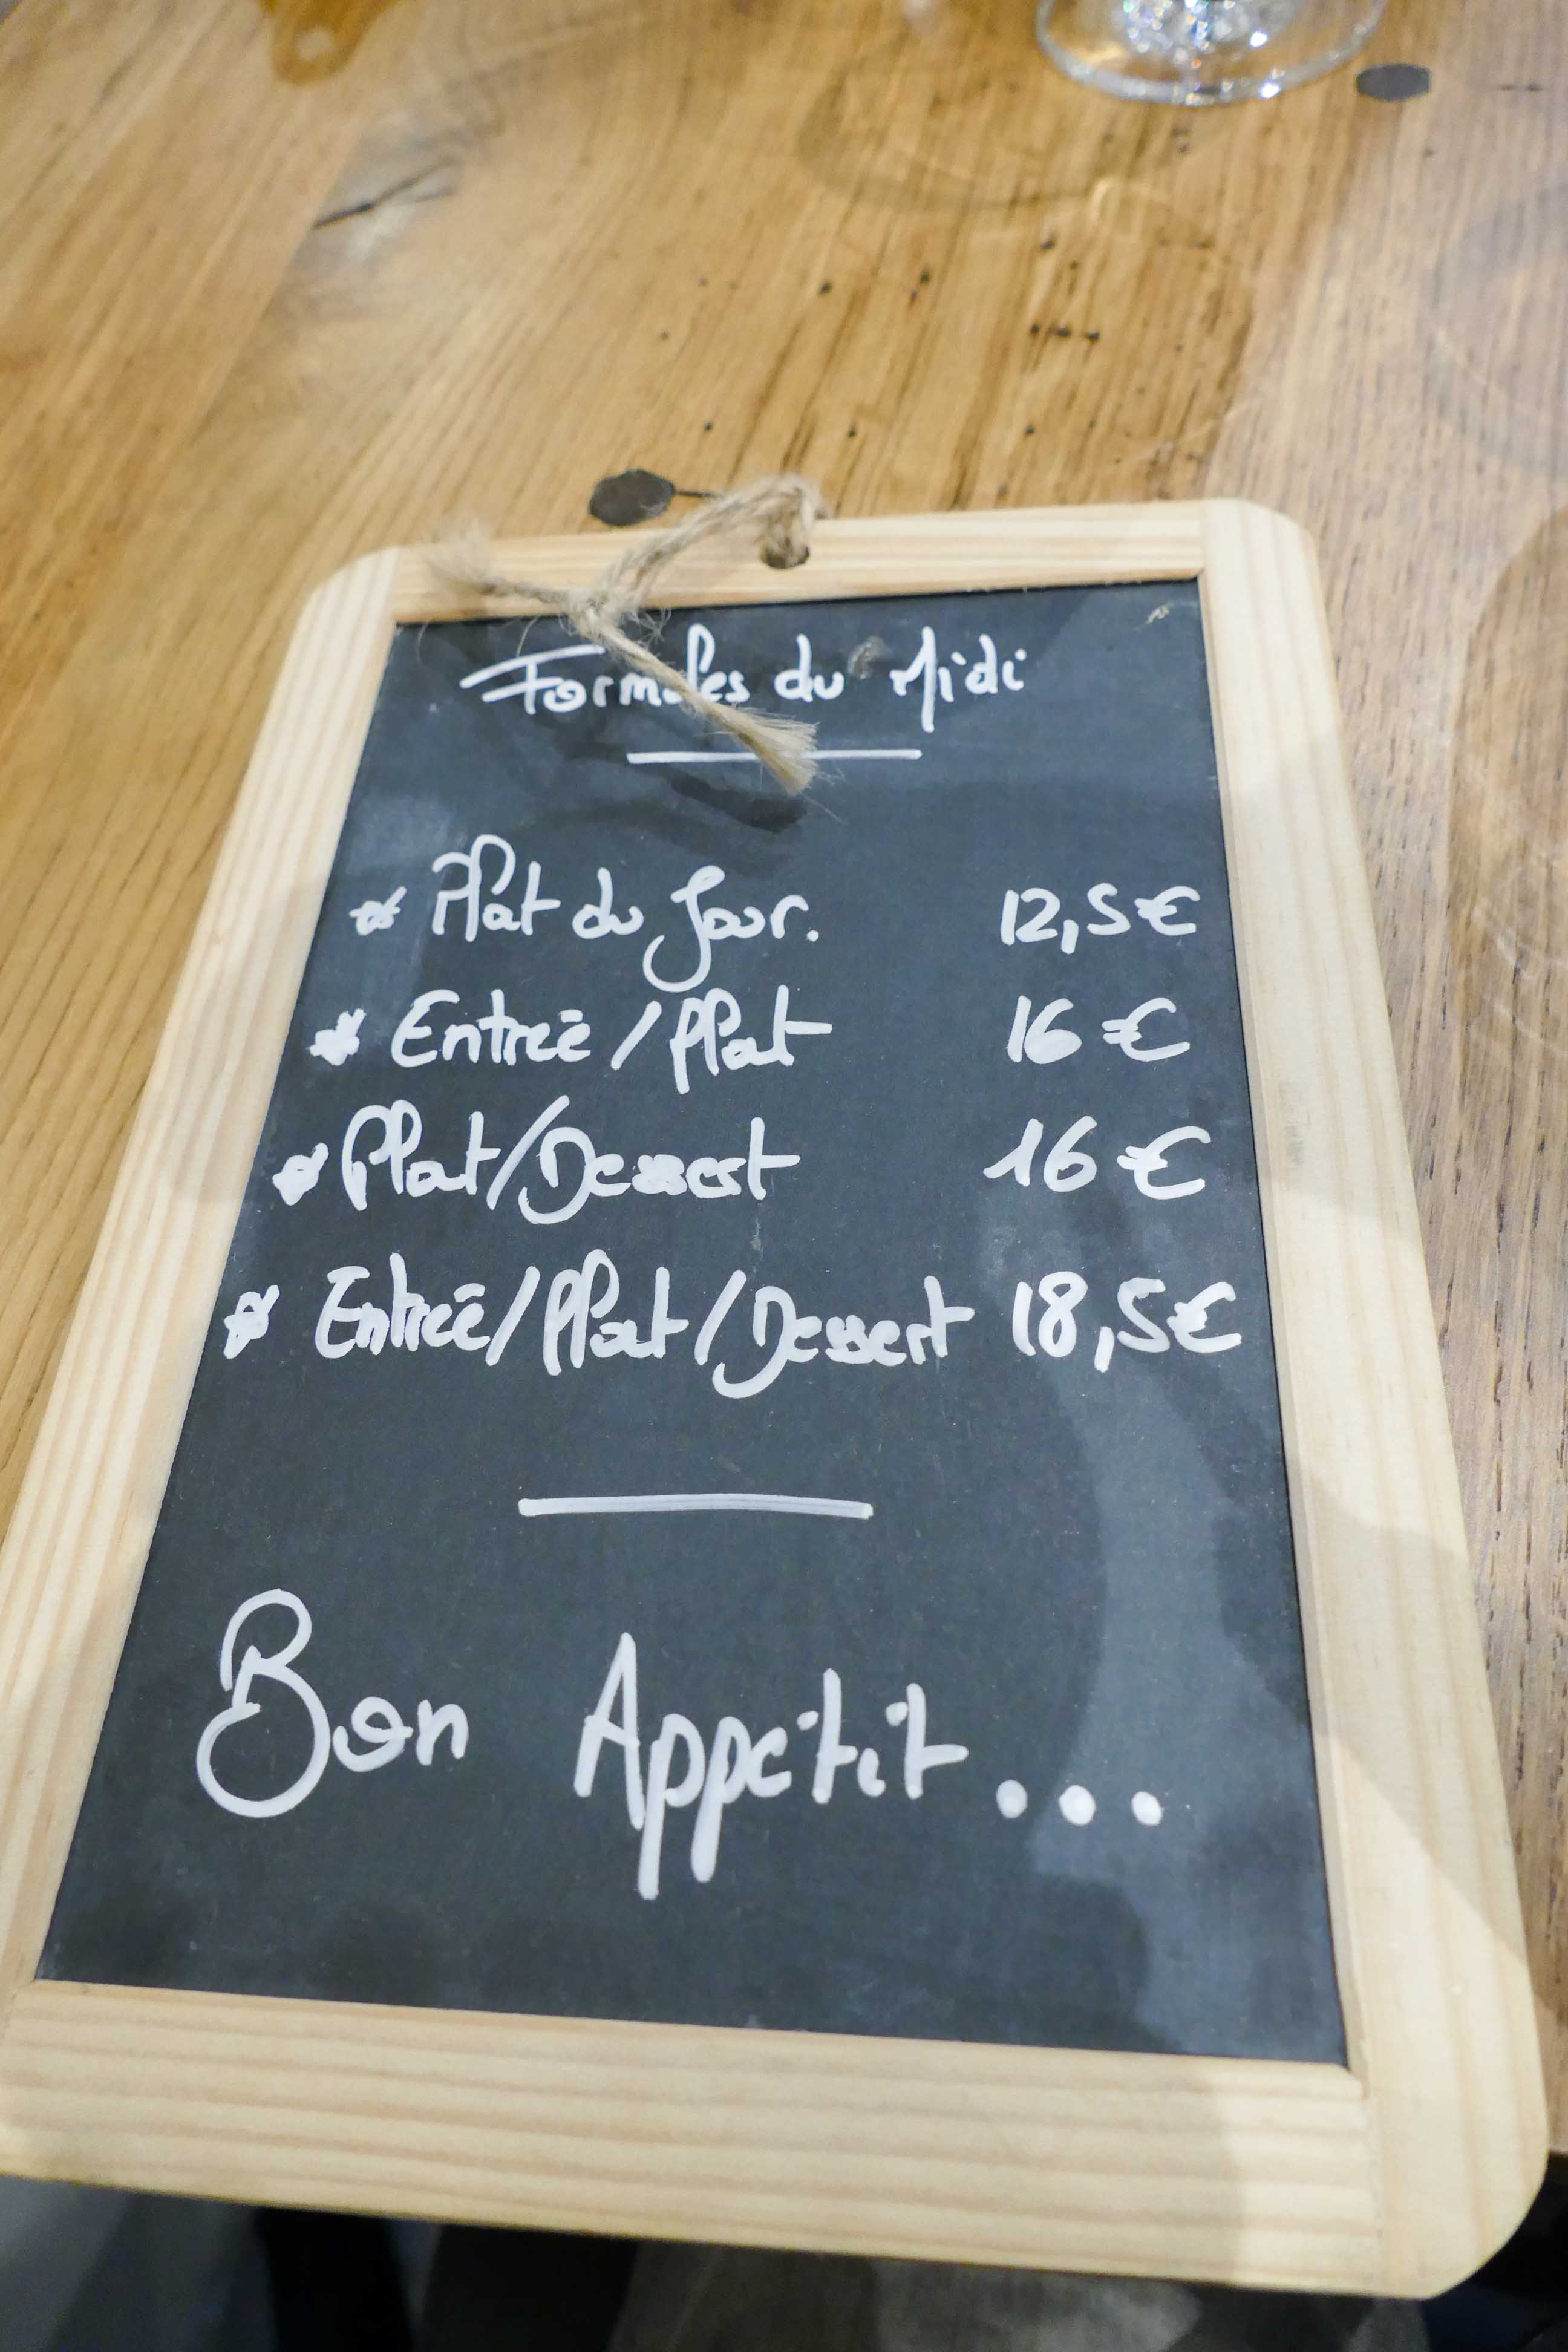 Formules du Midi
* Plat du Jour. 12,5€
* Entrée / Plat 16€
* Plat/Dessert 16€
* Entrée/Plat/Dessert 18,5€
Bon Appétit...